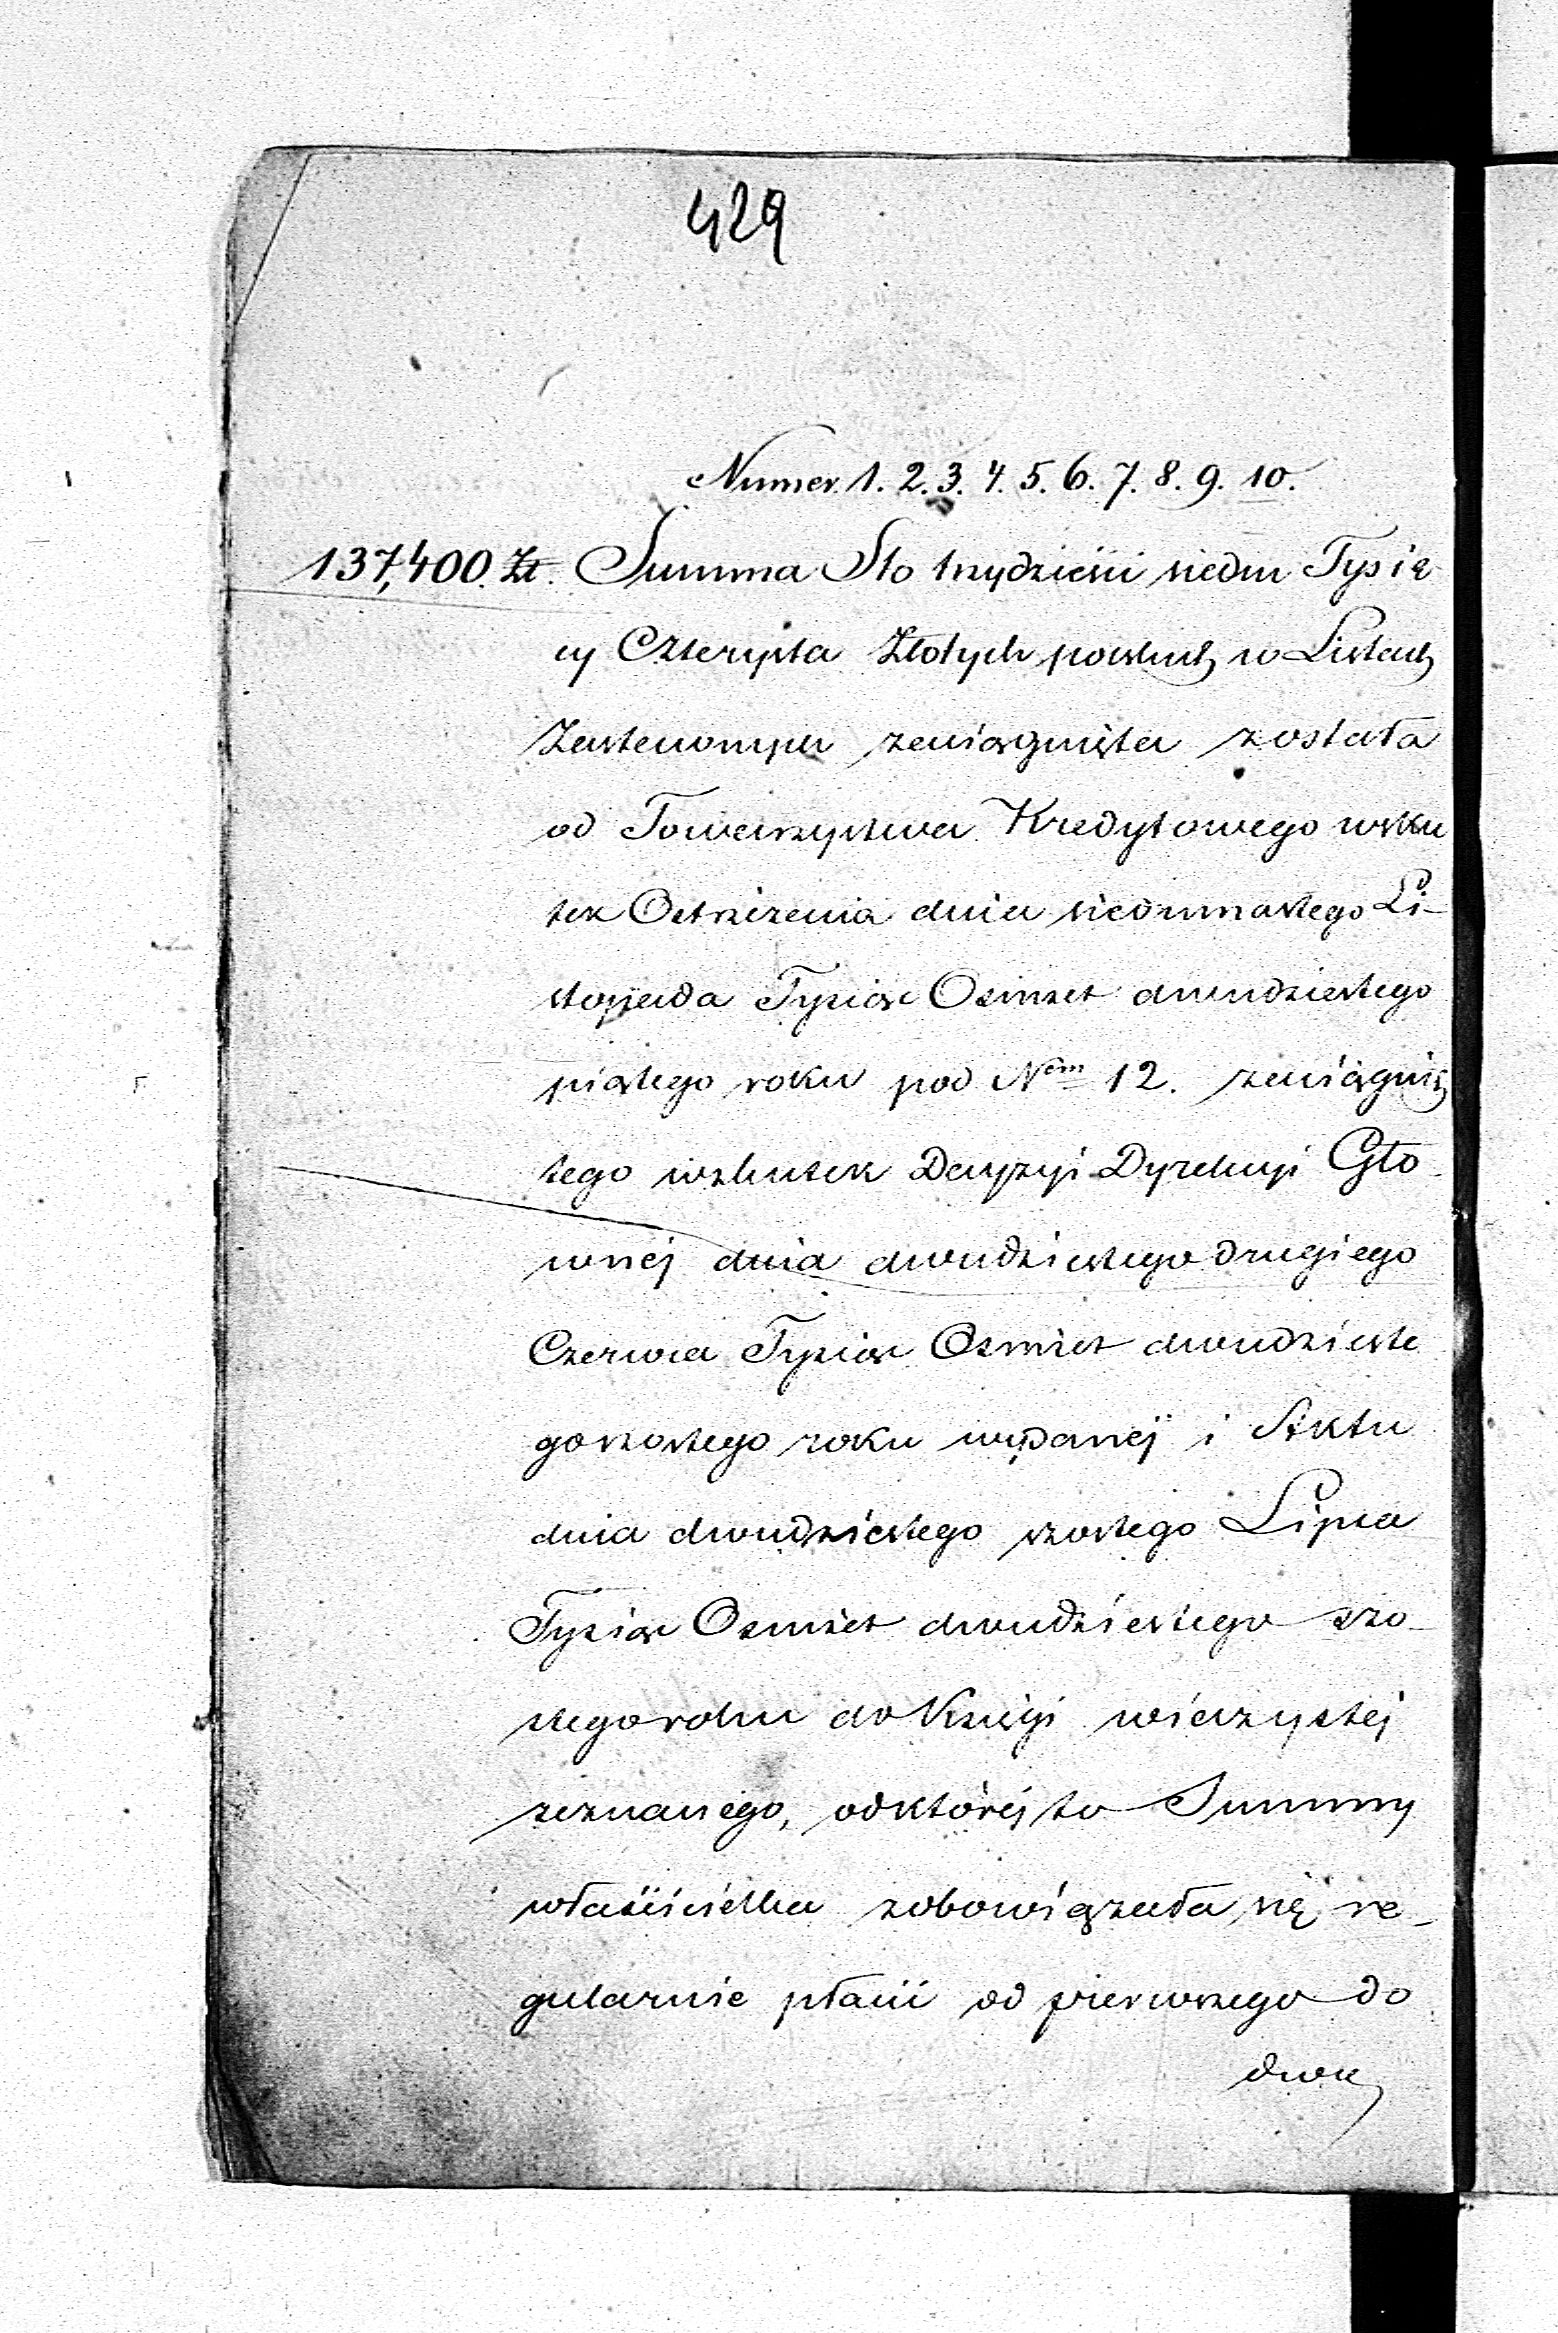 429
Numer. 1. 2. 3. 4. 5. 6. 7. 8. 9. 10.
137,400. Zł. Summa Sto trzydzieści siedm Tysię
cy Czterysta Złotych polskich w Listach
Zastawnych zaciągnięta została
od Towarzystwa Kredytowego wsku
tek Ostrzeżenia dnia siedmnastego Li-
stopada Tysiąc Ośmset dwudziestego
piątego roku pod Nem 12. zaciągnię
tego wskutek Decyzyi Dyrekcyi Gło
wnéj dnia dwudziestego drugiego
Czerwca Tysiąc Ośmset dwudzieste
go szostego roku wydanéj i Aktu
dnia dwudziestego szostego Lipca
Tysiąc Ośmset dwudziestego szo-
stego roku do Księgi wieczystéj
zeznanego, od któréj to Summy
właścicielka zobowiązała się re-
gularnie płacić od pierwszego do
dwu